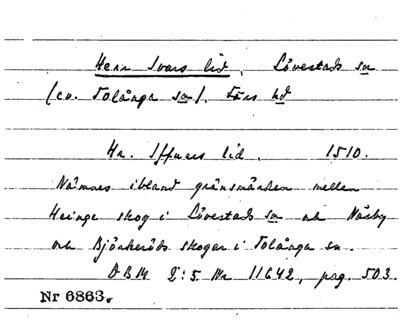 Herr Ivars lid, Lövestads sn
(ev. Tolånga sn). Färs hd
Hr. Iffuers lid. 1510.
Nämnes ibland gränsmärken mellan
Heinge skog i Lövestads sn och Näsby
och Björkeröds skogar i Tolånga sn.
ÆBM I:5 Nr 11642, pag. 503.
Nr 6863.